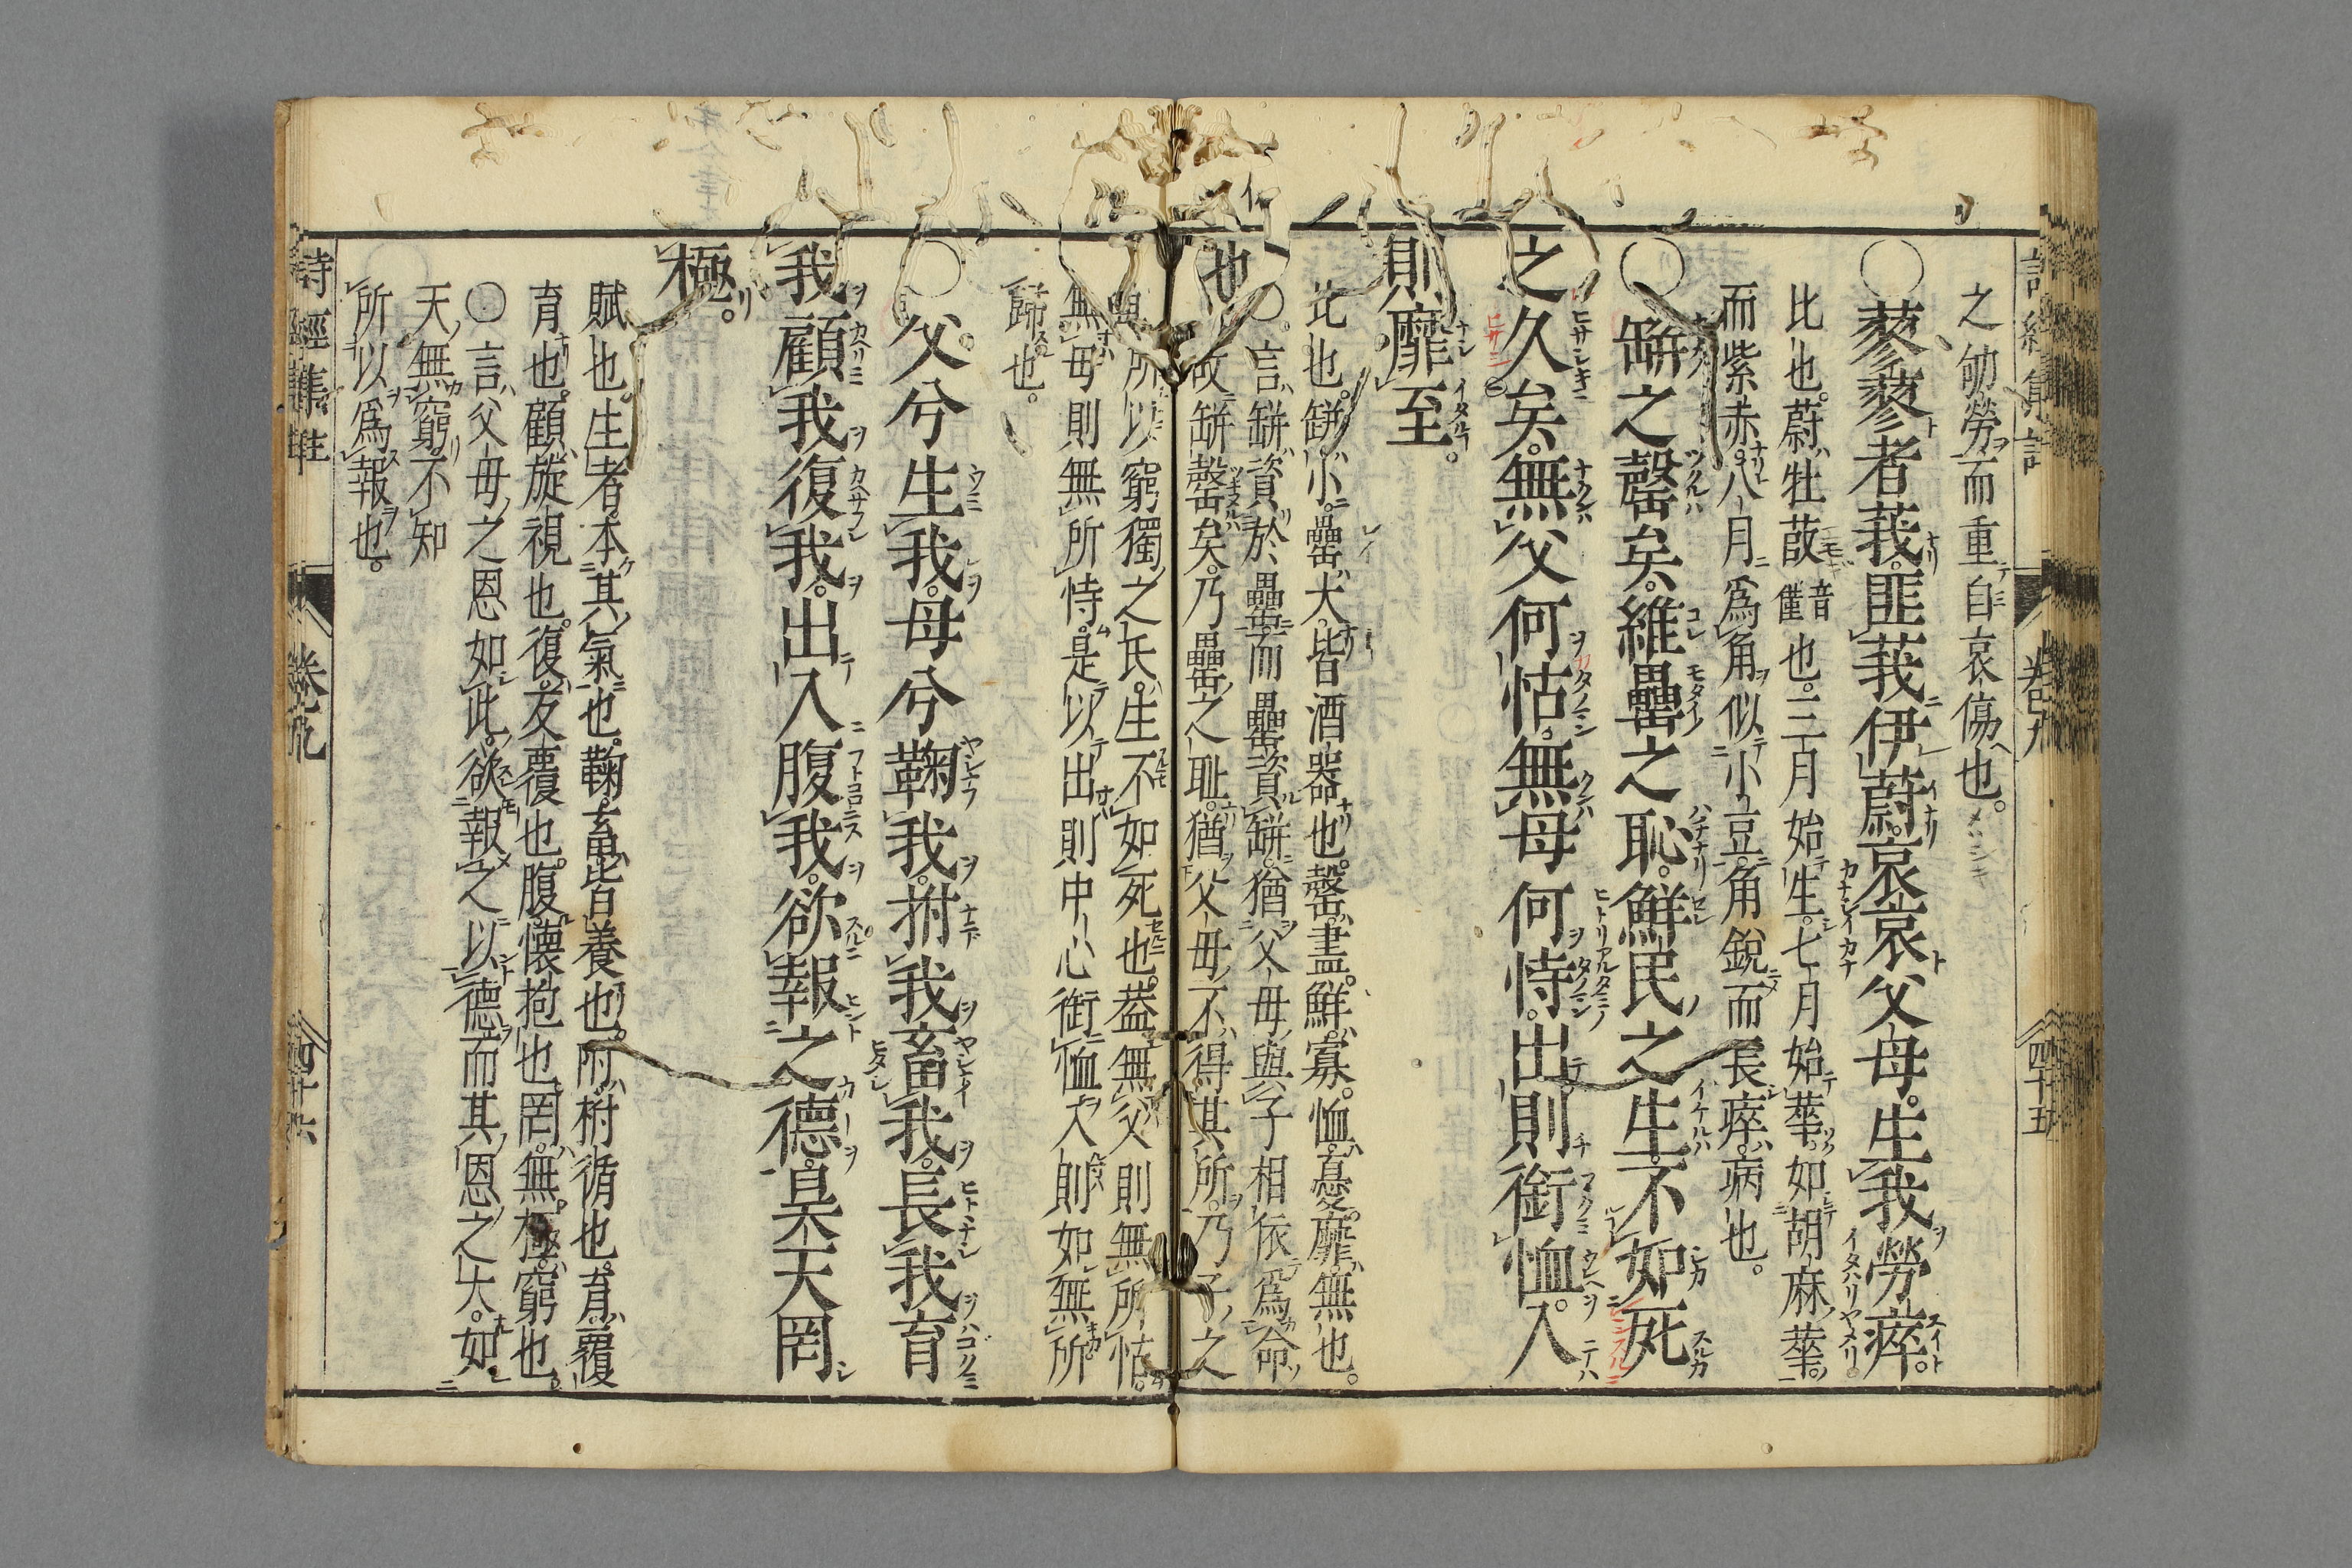 之劬勞而重自哀傷也。
○蓼蓼者莪。匪莪伊蔚。哀哀父母。生我勞瘁。
比也。蔚牡菣音僅也。三月始生。七月始華。如胡麻華。
而紫赤。八月爲角。似小豆。角銳而長。瘁病也。
○缾之罄矣。維罍之恥。鮮民之生。不如死
之久矣。無父何怙。無母何恃。出則銜恤。入
則靡至。
比也。缾小。罍大。皆酒器也。罄。盡。鮮。寡。恤。憂。靡。無也。
○言缾資於罍。而罍資缾。猶父母與子相依爲命
也。故缾罄矣。乃罍之恥。猶父母不得其所。乃子之
與所以窮獨之民。生不如死也。蓋無父則無所怙。
無母則無所恃。是以出則中心銜恤。入則如無所
歸也。
○父兮生我。母兮鞠我。拊我畜我。長我育
我。顧我復我。出入腹我。欲報之德。昊天罔
極。
賦也。生者。本其氣也。鞠畜皆養也。拊。拊循也。育。覆
育也。顧。旋視也。復。反覆也。腹。懷抱也。罔。無。極。窮也。
○言父母之恩如此。欲報之以德。而其恩之大。如
天無窮。不知
所以爲報也。
詩經集註
卷九
四十五
四十六